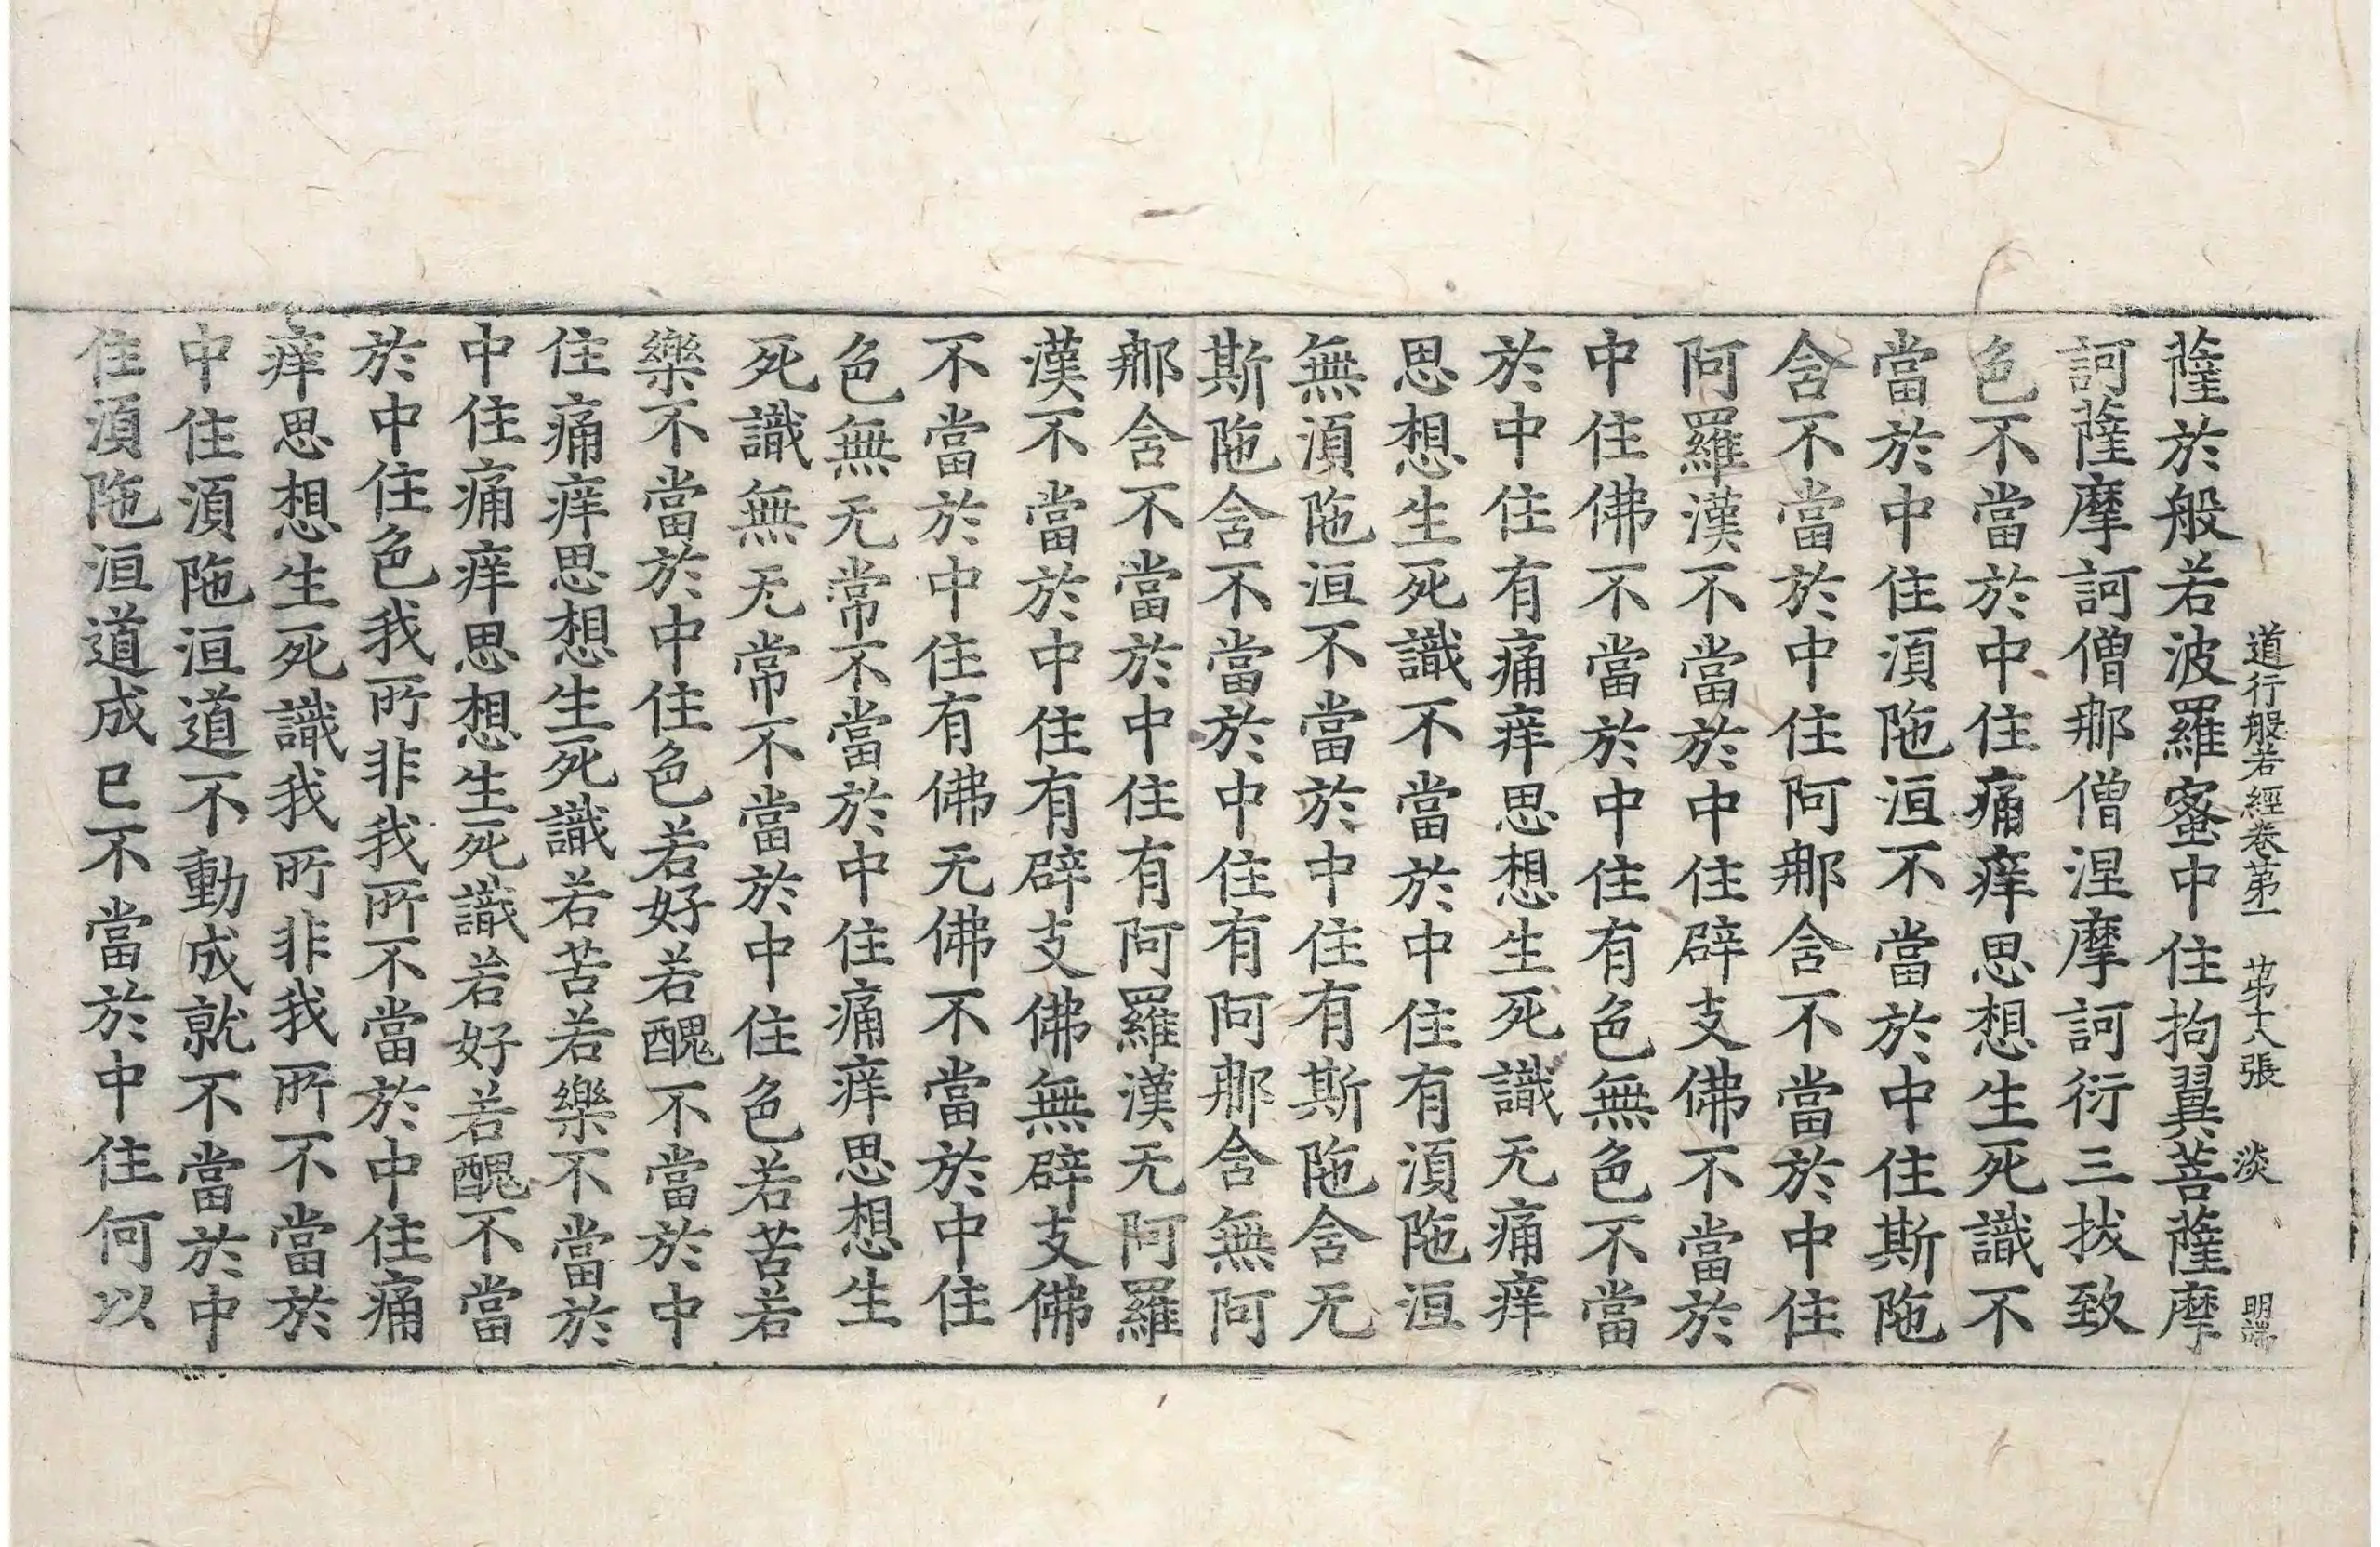 道行般若經卷第一 第十八張 淡 明端
薩於般若波羅蜜中住拘翼菩薩摩
訶薩摩訶僧那僧涅摩訶衍三拔致
色不當於中住痛痒思想生死識不
當於中住湏陁洹不當於中住斯陁
含不當於中住阿那含不當於中住
阿羅漢不當於中住辟支佛不當於
中住佛不當於中住有色無色不當
於中住有痛痒思想生死識无痛痒
思想生死識不當於中住有湏陁洹
無湏陁洹不當於中住有斯陁含无
斯陁含不當於中住有阿那含無阿
那含不當於中住有阿羅漢无阿羅
漢不當於中住有辟支佛無辟支佛
不當於中住有佛无佛不當於中住
色無无常不當於中住痛痒思想生
死識無无常不當於中住色若苦若
樂不當於中住色若好若醜不當於中
住痛痒思想生死識若苦若樂不當於
中住痛痒思想生死識若好若醜不當
於中住色我所非我所不當於中住痛
痒思想生死識我所非我所不當於
中住湏陁洹道不動成就不當於中
住湏陁洹道成已不當於中住何以